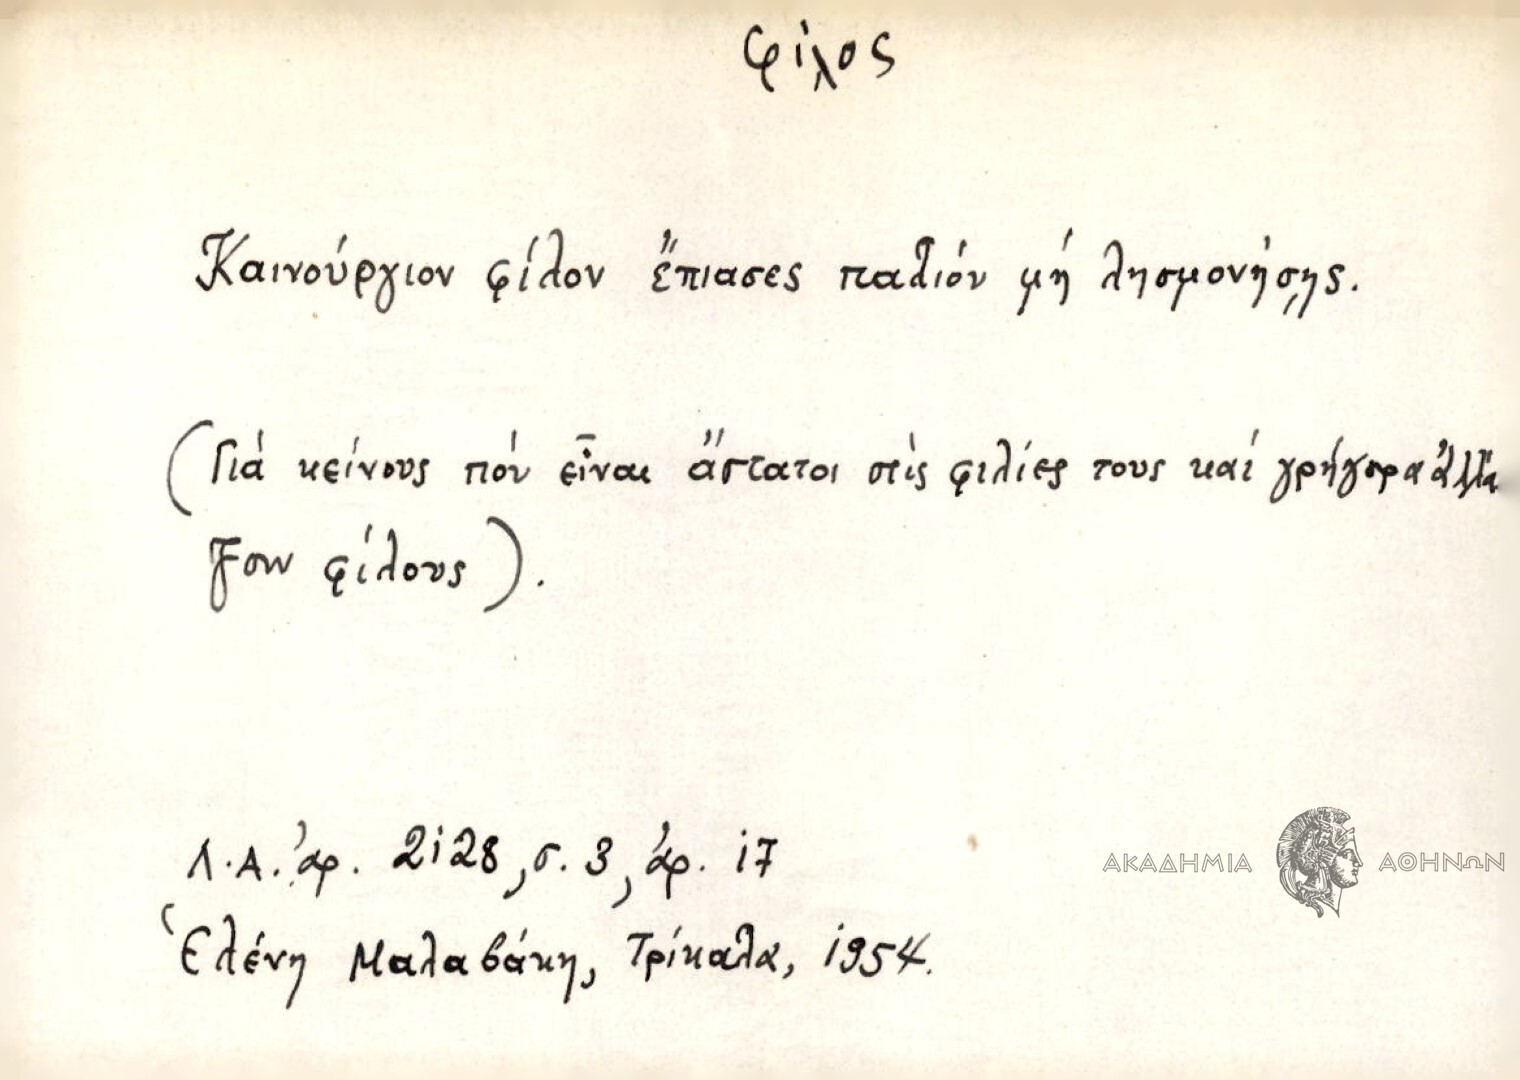 φίλος
Καινούργιον φίλον ἔπιασες παλιόν μή λησμονήσῃς.
(Γιά κείνους πού εἶναι ἄστατοι στίς φιλίες τους καί γρήγορα ἀλλά
ζουν φίλους).
Λ.Α. ἀρ. 2128, σ. 3, ἀρ. 17
Ἑλένη Μαλαβάκη, Τρίκαλα, 1954.
ΑΚΑΔΗΜΙΑ ΑΘΗΝΩΝ